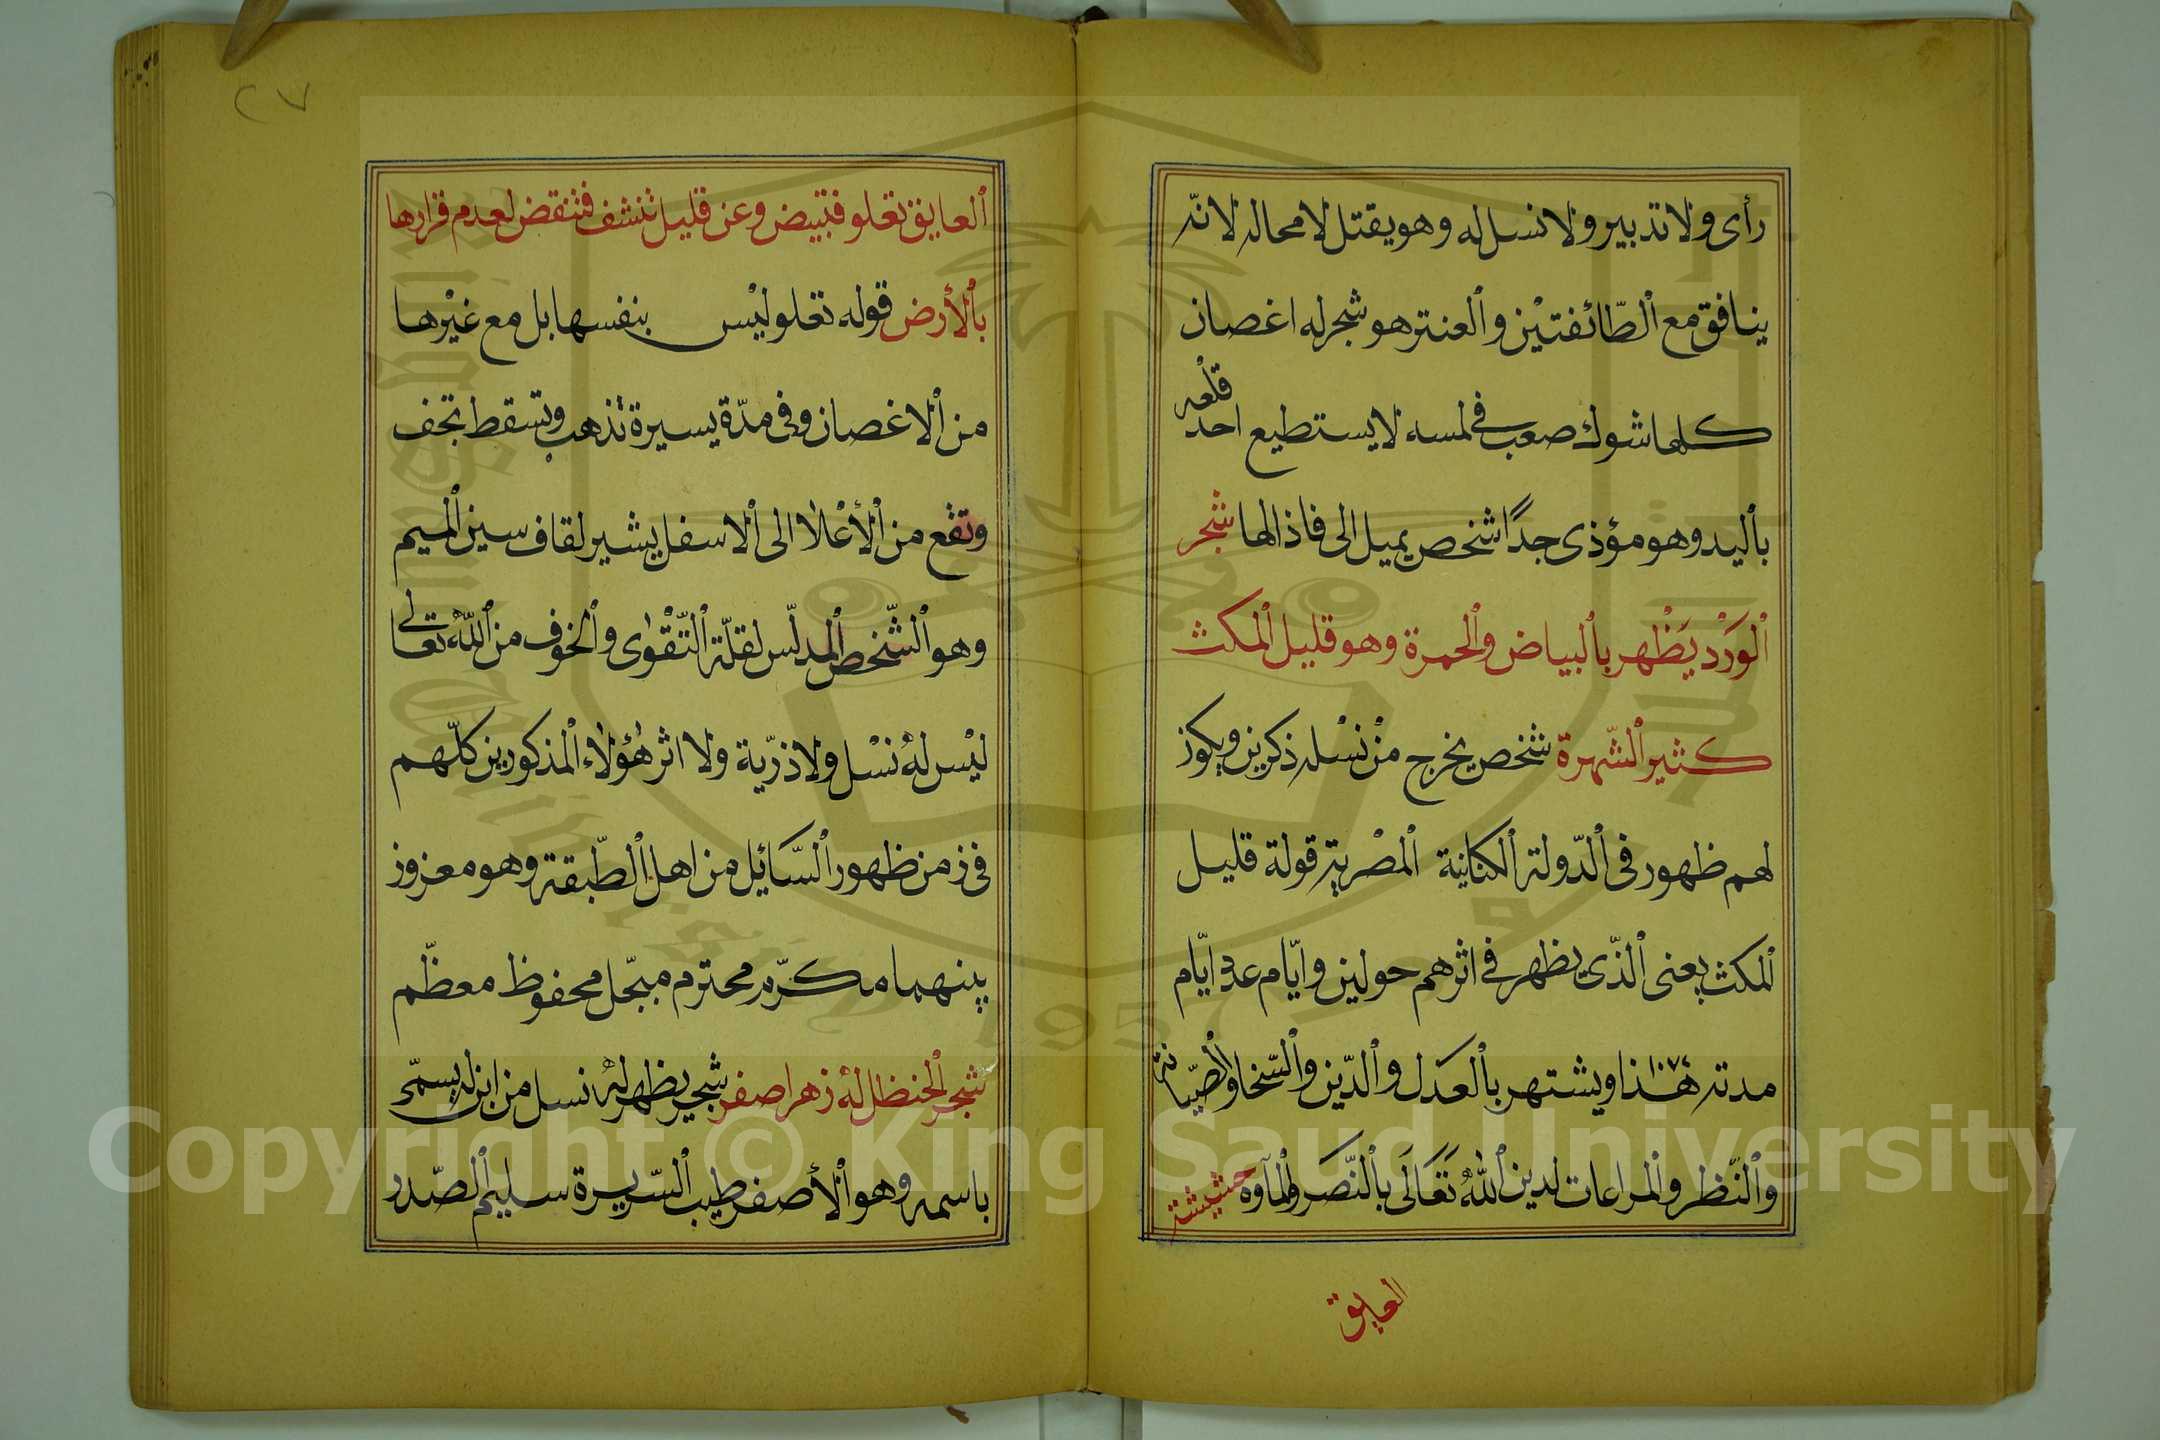 رأى ولا تدبير ولا نسل له وهو يقتل لا محاله لانّه
ينافق مع ٱلطّائفتيْن وٱلعنتر هو شجر له اغصان
كلها شوك صعب في لمسه لا يستطيع احد قلْعه
بٱليد وهو مؤذى جدًا شخص يميل الى فاذالها شجر
ٱلوَرْد يَظْهر بٱلبياض وٱلحمرة وهو قليل ٱلمكث
كثير ٱلشّهرة شخص يخرج منْ نسْله ذكرين ويكون
لهم ظهور فى ٱلدّولة ٱلكنانية ٱلمصْرية قوله قليل
ٱلمكث يعنى ٱلذّى يظهر فى اثرهم حولين وايّام عدد ايّام
مدته هٰذا ١٠٧٤ ويشتهر بٱلعَدْل وٱلدّين وٱلسّخا وٱلصّيانة
وٱلنّظر وٱلمراعات لدين ٱللّهُ تَعَالَى بٱلنّصَر وٱلمآوة حشيشة
العايق
٢٧
ٱلعايق تعلو فتبيض وعن قليل تنشف فتنقض لعدم قرارها
بٱلأرض قوله تعلو ليْس بنفسها بل مع غيْرها
من ٱلاغصان وفى مدّة يسيرة تذهب وتسقط تجف
وتقع من ٱلأعْلا الى ٱلاسفل يشير لقاف سين ٱلميم
وهو ٱلشّخص ٱلمدلّس لقلّة ٱلتّقْوٰى وٱلخوف من ٱللّهُ تعالى
ليْس لهُ نسْل ولا ذرّية ولا اثر هٰؤلاء ٱلمذكورين كلّهم
فى زمن ظهور ٱلسّائل من اهل ٱلطّبقة وهو معزوز
بينهما مكرّم محترم مبجّل محفوظ معظّم
شجر ٱلحنظل لهُ زهر اصفر شجر يظهر لهُ نسل من ابن له يسمّى
باسمه وهو ٱلأصفر طيب ٱلسّريرة سليم ٱلصّدر
Copyright © King Saud University
1957